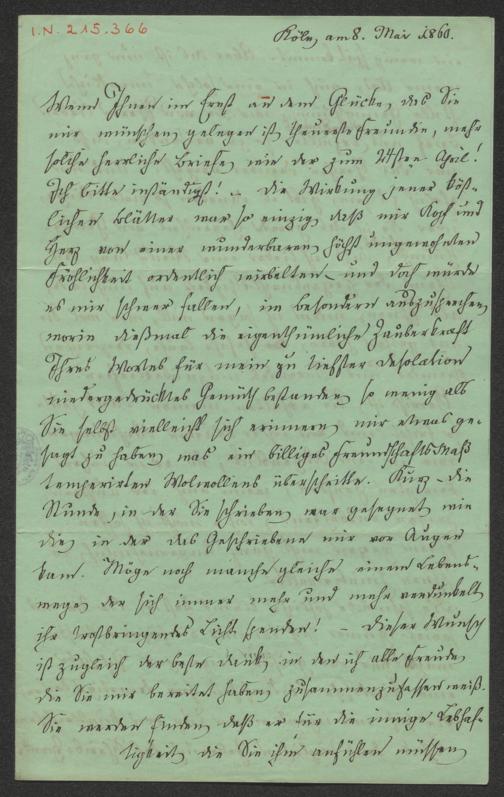 I.N. 215.366
Köln, am 8. Mai 1860.
Wenn Ihnen im Ernst an dem Glücke, das Sie
mir wünschen, gelegen ist, theuerste Freundin, mehr
solche herrliche Briefe, wie der zum 24sten April!
Ich bitte inständigst! – Die Wirkung jener köst-
lichen Blätter war so einzig, daß mir Kopf und
Herz von einer wunderbaren, höchst ungewohnten
Fröhlichkeit ordentlich wirbelten – und doch würde
es mir schwer fallen, im besondern auszusprechen,
worin dießmal die eigenthümliche Zauberkraft
Ihres Wortes für mein zu tiefster Desolation
niedergedrücktes Gemüth bestanden, so wenig als
Sie selbst vielleicht sich erinnern, mir etwas ge-
sagt zu haben, was ein billiges Freundschaftsmaß
temperirten Wolwollens überschritte. Kurz – die
Stunde, in der Sie schrieben, war gesegnet wie
die, in der das Geschriebene mir vor Augen
kam. Möge noch manche gleiche einem Lebens-
wege, der sich immer mehr und mehr verdunkelt,
ihr trostbringendes Licht spenden! – Dieser Wunsch
ist zugleich der beste Dank, in den ich alle Freude,
die Sie mir bereitet haben, zusammenzufassen weiß.
Sie werden finden, daß er für die innige Lebhaf-
tigkeit, die Sie ihm anfühlen müssen,